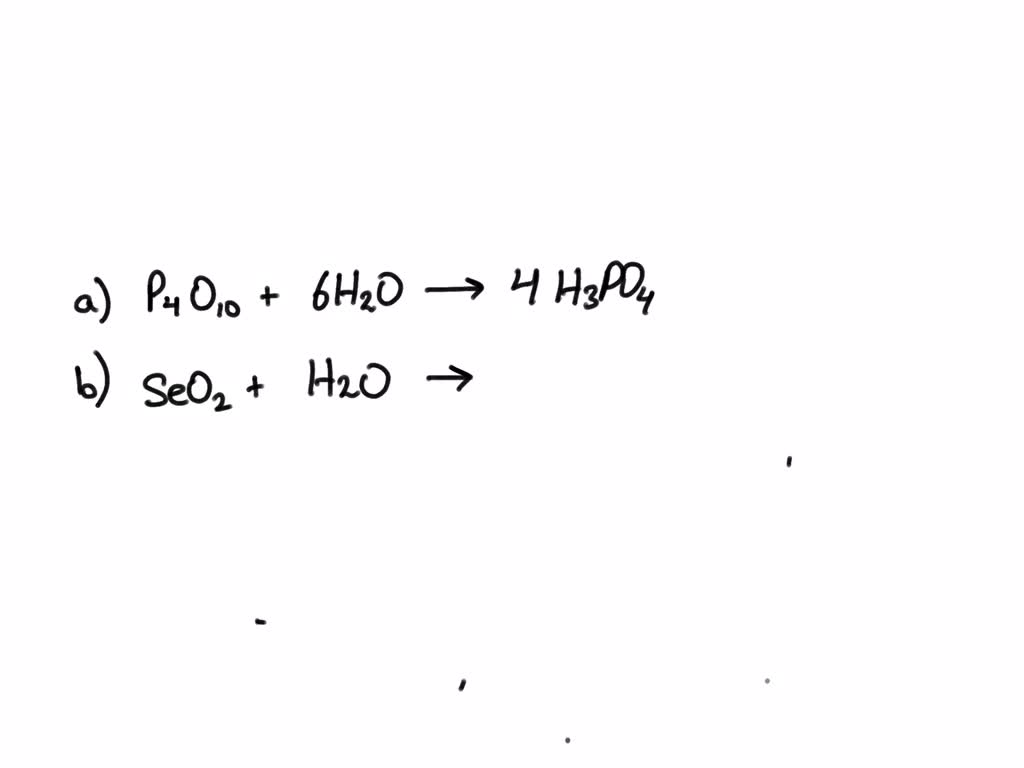 a) P₄O₁₀ + 6H₂O → 4 H₃PO₄
b) SeO₂ + H₂O →